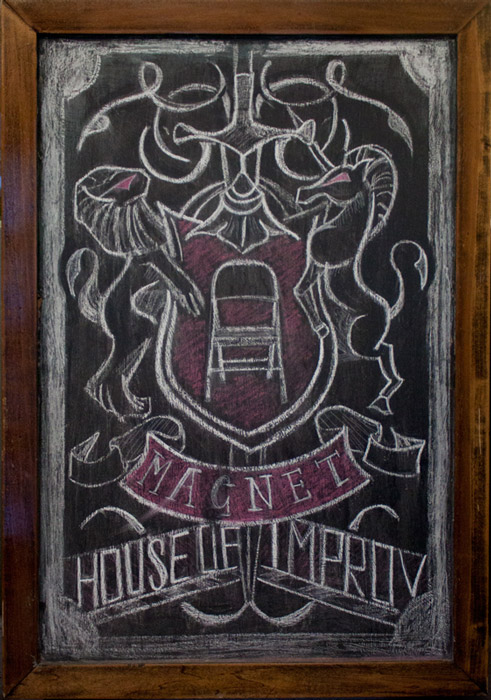 MAGNET
HOUSE OF IMPROV